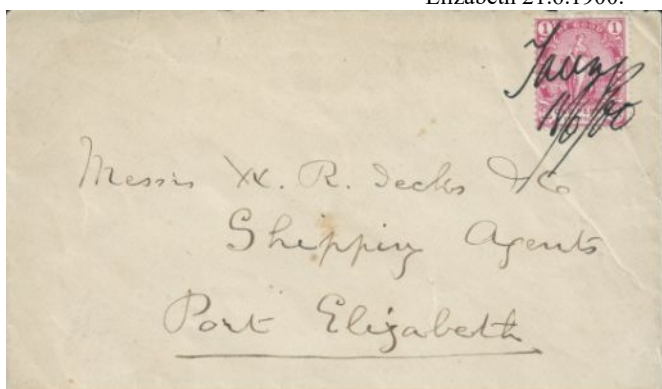 Elizabeth 21.6.1900.
1 OF GOOD 1
Taungs
18/6/00
Messrs W. R. Decks & Co
Shipping Agents
Port Elizabeth